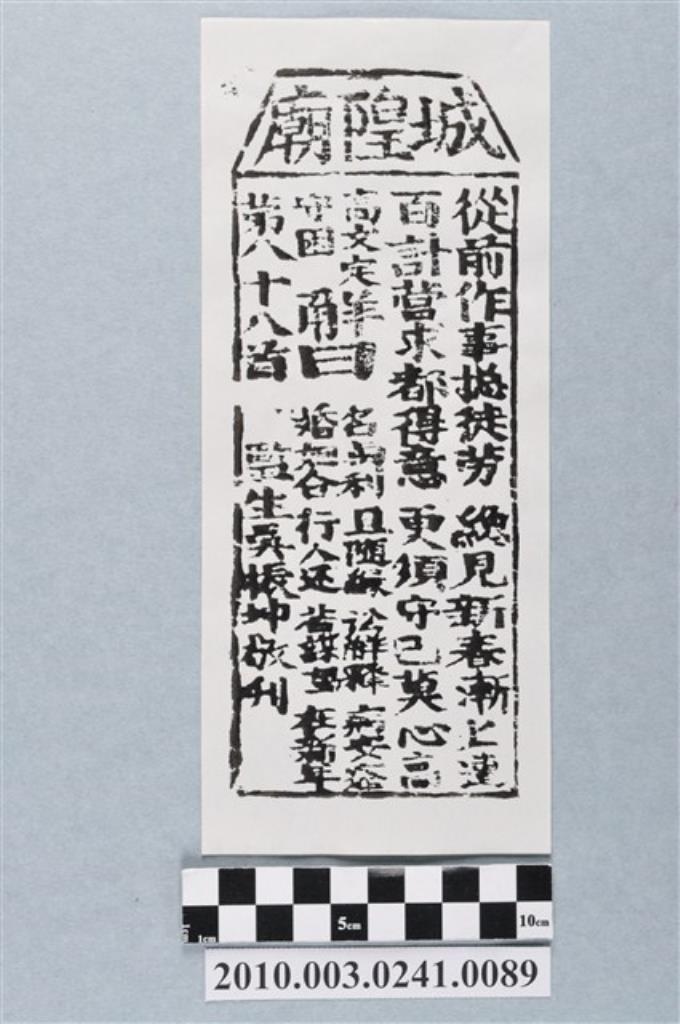 城隍廟
從前作事揔徒劳 見新春漸上
百計營求都得意 更須守己莫心高
高文定
守困
曰
名與利 且隨緣 訟解釋 病安痊
婚和合 行人还 若謀望 在新年
苐八十八首
監生吳振坤敬刊
5cm
10cm
1cm
2010.003.0241.0089